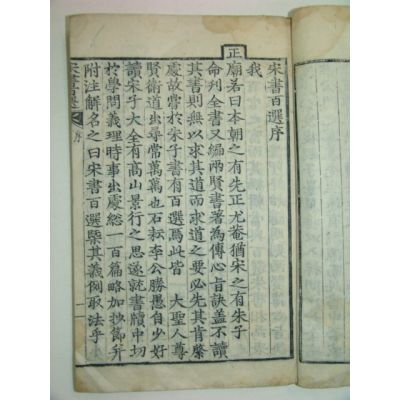 宋書百選序
我
正廟若曰本朝之有先正尤菴猶宋之有朱子
命刊全書又編兩賢書著為傳心旨訣盖不讀
其書則無以求其道而求道之要必先其肯綮
處故嘗於朱子書有百選焉此皆 大聖人尊
賢衛道出尋常萬萬也石耘李公勝愚自少好
讀宋子大全有高山景行之思遂就書牘中切
於學問義理時事出處総一百篇略加抄節幷
附注解名之曰宋書百選槩其義例取法乎
序